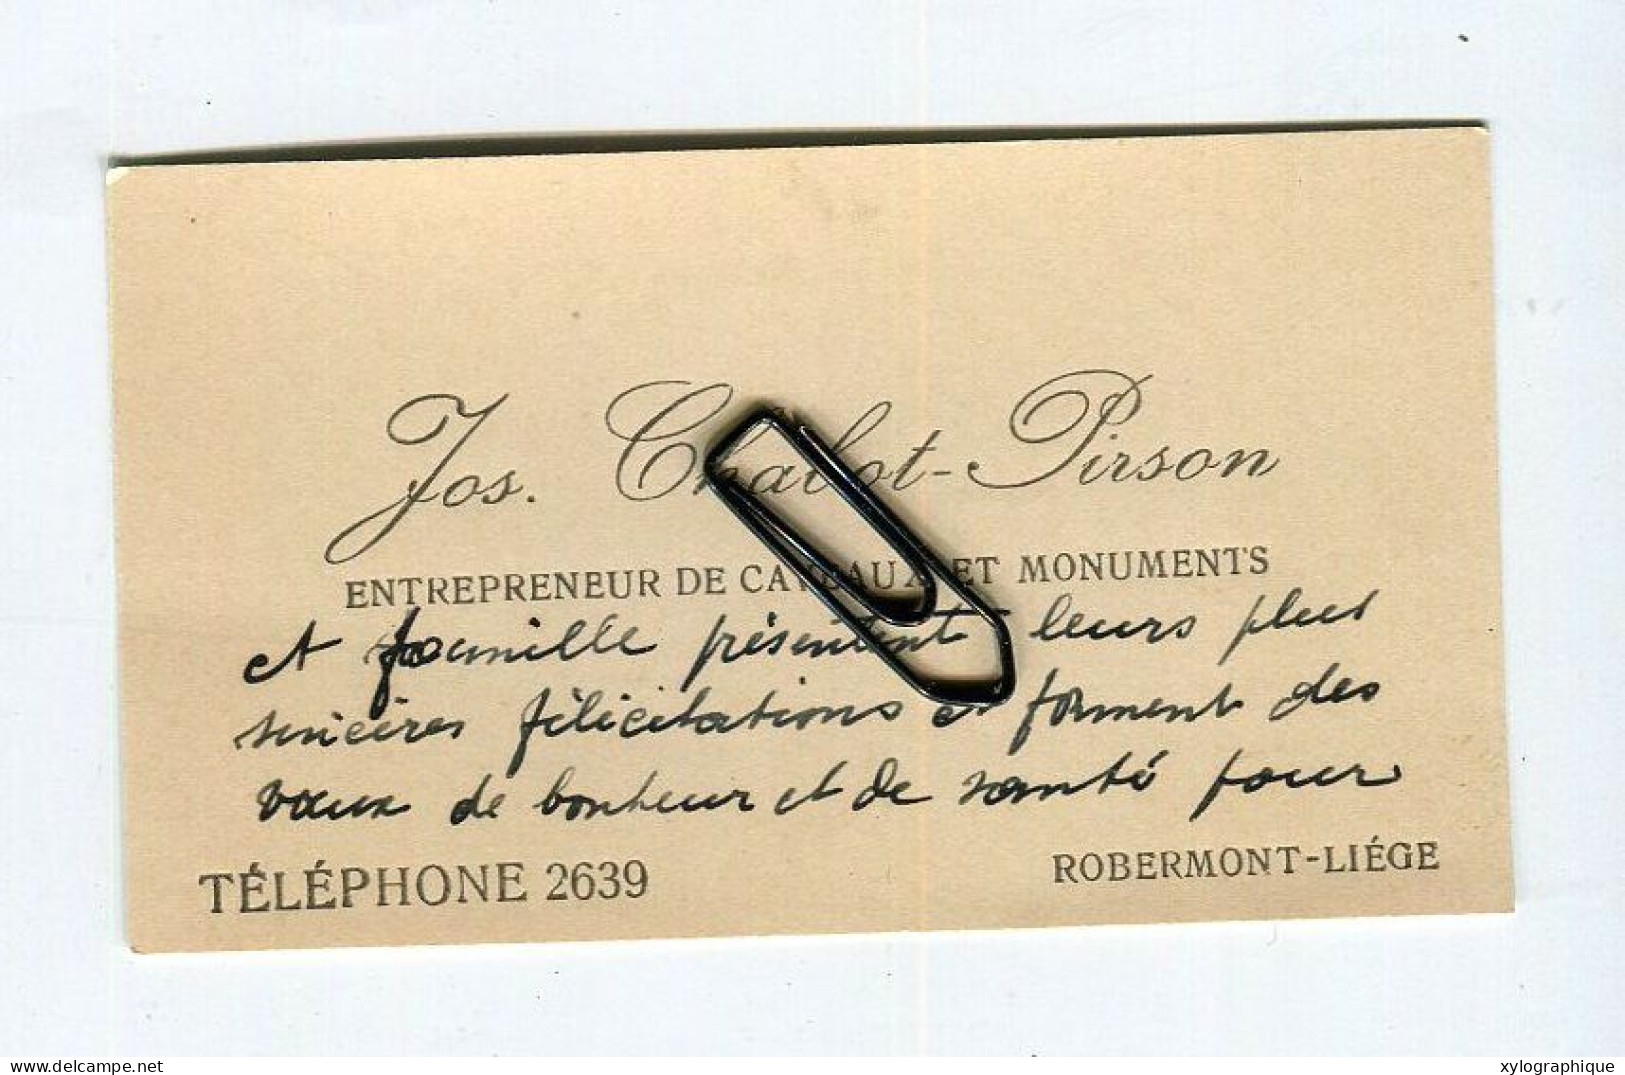 Jos. Chabot-Pirson
ENTREPRENEUR DE CAVEAUX ET MONUMENTS
et famille présentent leurs plus
sincères félicitations et forment des
vœux de bonheur et de santé pour
TÉLÉPHONE 2639
ROBERMONT-LIÉGE
delcampe.net
xylographique